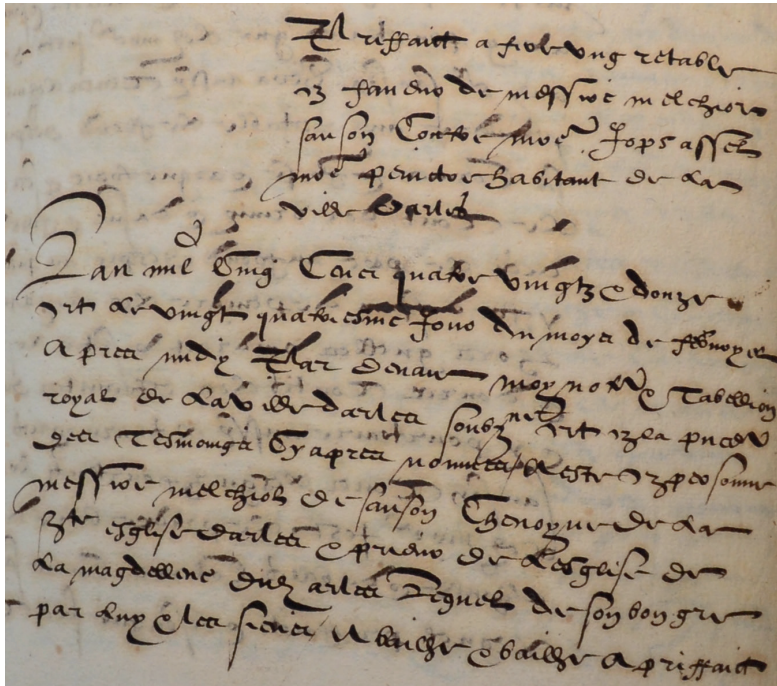 Priffaict a faire ung retable
en faveur de messire melchior
sanson Contre me Jops assel
me peinctre habitant de la
ville d'arles
L'an mil Cinq Cens quatre vingtz & donze
et le vingt quatriesme Jour du moys de febvoyer
Apres midy Par devant moy notre & Tabellion
royal de la ville darles soubzne et en la pnce
des Tesmoings Cy apres nommes estre en personne
messire melchiol de sanson Chenoyne de la
ste esglise darles & prieur de l'esglise de
la magdellene dud arles Lequel de son bon gre
par luy & les siens A bailhe & bailhe A priffaict